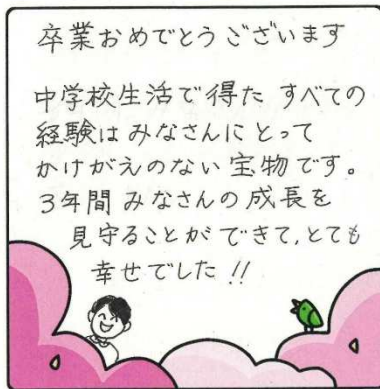 卒業おめでとうございます
中学校生活で得た すべての
経験は みなさんに とって
かけがえのない 宝物です。
3年間 みなさんの 成長を
見守ることが できて、とても
幸せでした!!